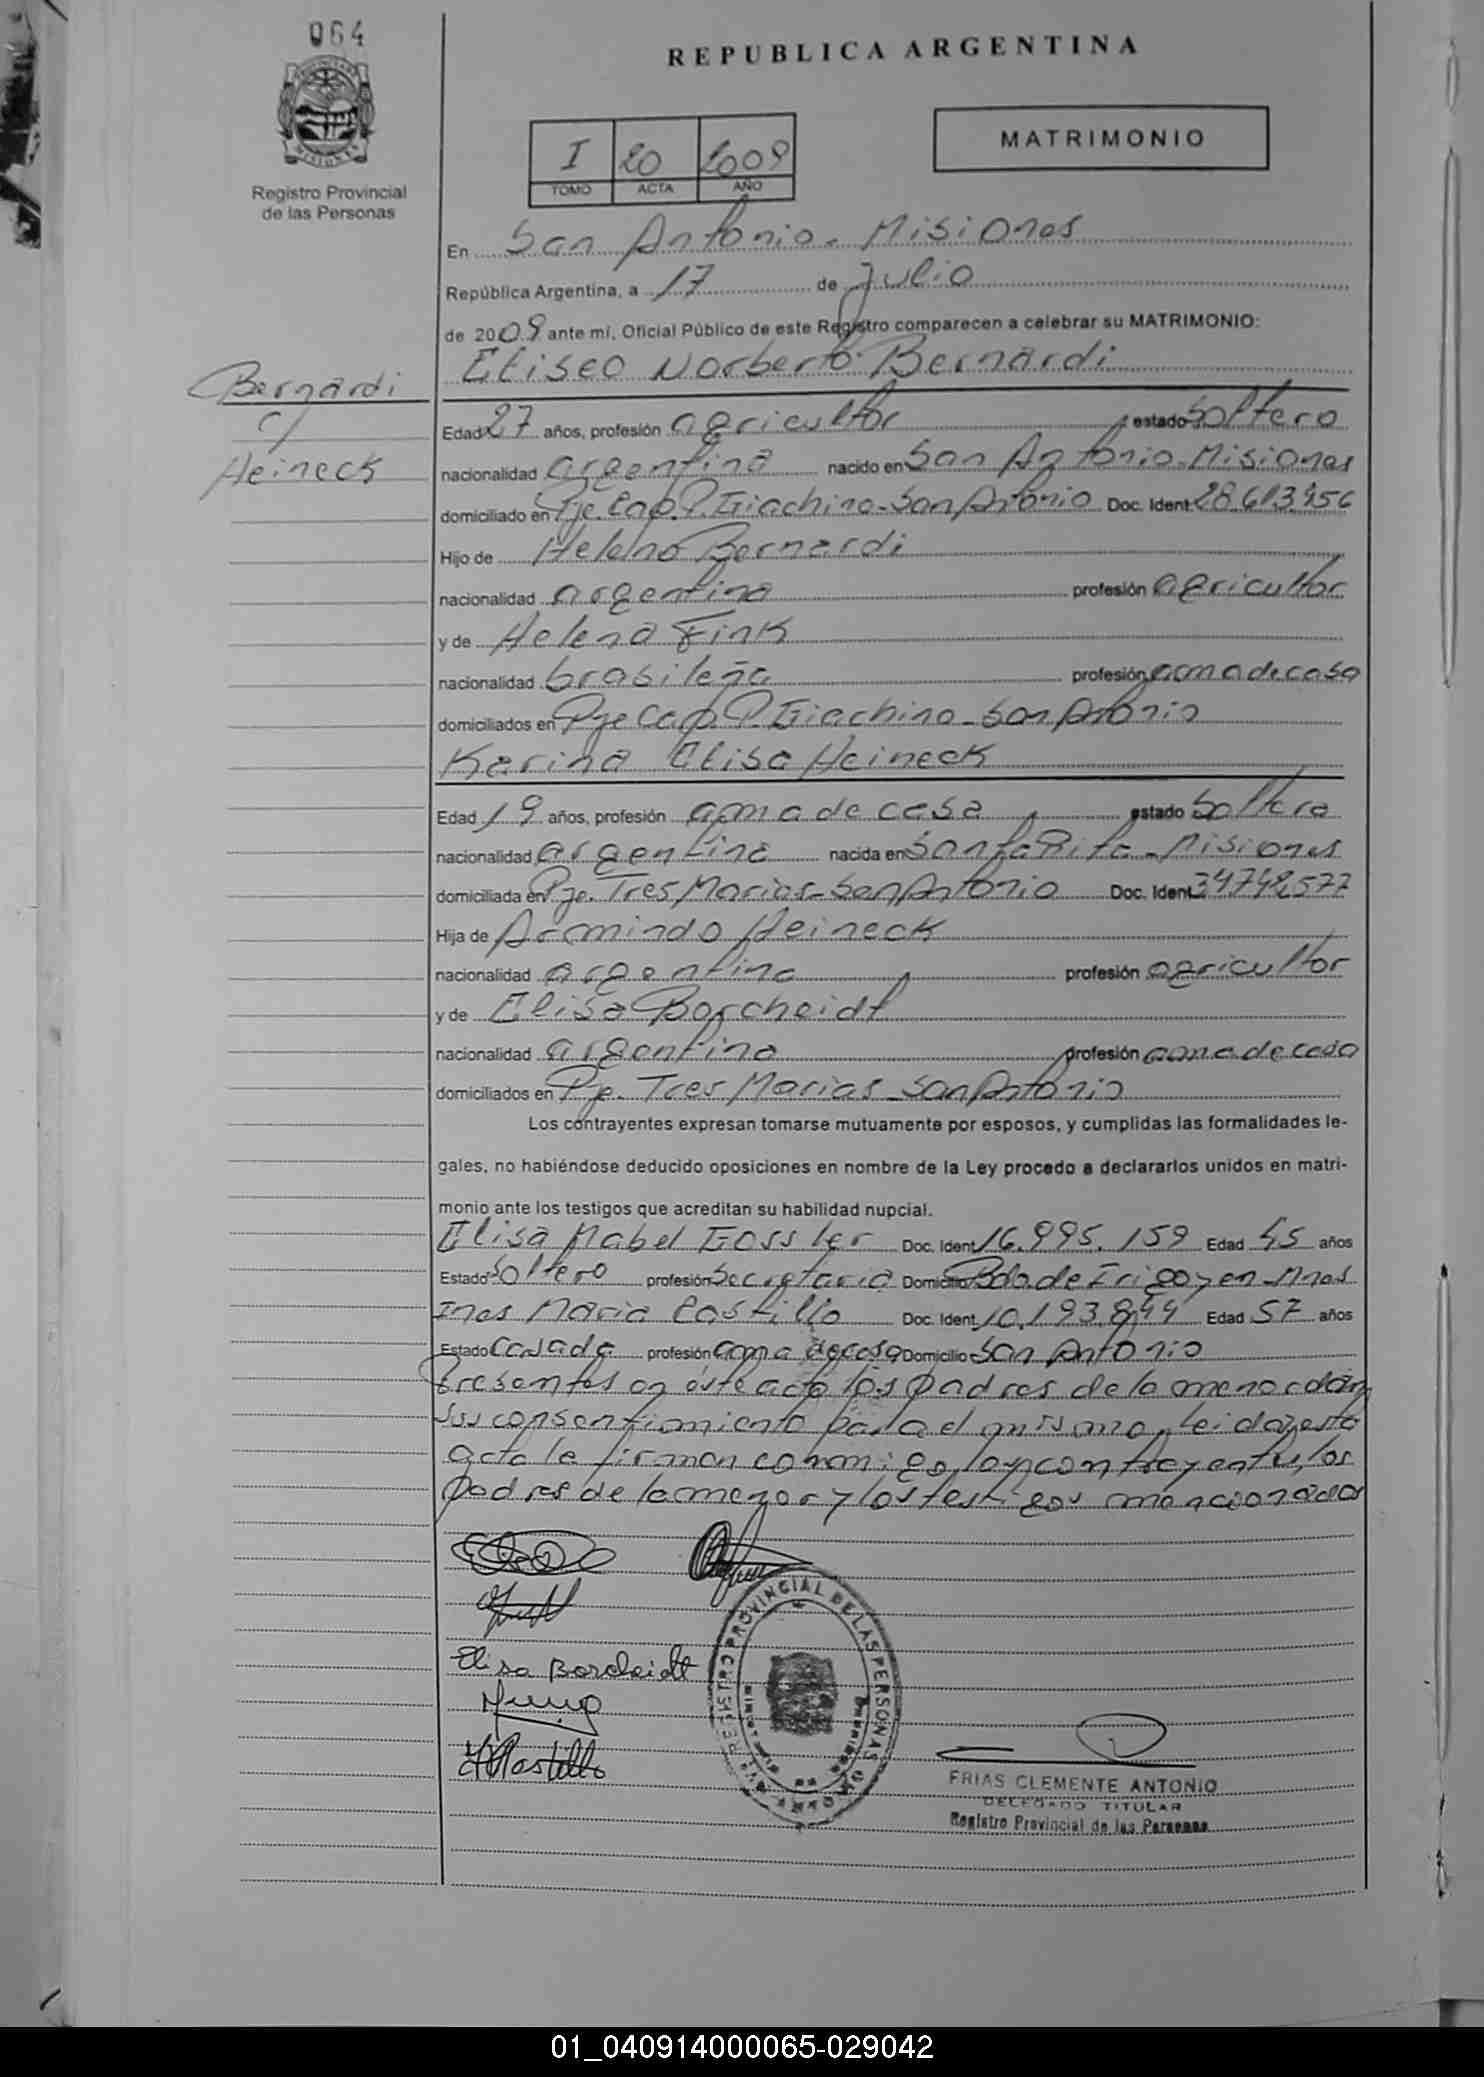 064
REPUBLICA ARGENTINA
MATRIMONIO
I 20 2009
TOMO ACTA AÑO
Registro Provincial
de las Personas
En San Antonio - Misiones
República Argentina, a 17 de Julio
de 2009 ante mí, Oficial Público de este Registro comparecen a celebrar su MATRIMONIO:
Eliseo Norberto Bernardi
Bernardi
c/
Heineck
Edad 27 años, profesión agricultor estado Soltero
nacionalidad argentina nacido en San Antonio - Misiones
domiciliado en Pje. Cap. P. Giachino - San Antonio Doc. Ident. 28.613.456
Hijo de Heleno Bernardi
nacionalidad argentina profesión agricultor
y de Helena Fink
nacionalidad brasileña profesión ama de casa
domiciliados en Pje Cap. P. Giachino - San Antonio
Karina Elisa Heineck
Edad 19 años, profesión ama de casa estado Soltera
nacionalidad argentina nacida en Santa Rita - Misiones
domiciliada en Pje. Tres Marias - San Antonio Doc. Ident. 34.748.577
Hija de Armindo Heineck
nacionalidad argentina profesión agricultor
y de Elisa Borcheidt
nacionalidad argentina profesión ama de casa
domiciliados en Pje. Tres Marias - San Antonio
Los contrayentes expresan tomarse mutuamente por esposos, y cumplidas las formalidades le-
gales, no habiéndose deducido oposiciones en nombre de la Ley procedo a declararlos unidos en matri-
monio ante los testigos que acreditan su habilidad nupcial.
Elisa Mabel Gossler Doc. Ident. 16.995.159 Edad 45 años
Estado Soltero profesión Secretaria Domicilio Bdo. de Irigoyen - Mnes
Ines Maria Castillo Doc. Ident. 10.193.844 Edad 57 años
Estado Casada profesión ama de casa Domicilio San Antonio
Presentes en este acto los padres de la menor dan
sus consentimiento para el mismo, leida esta
acta la firman conmigo, los contrayentes, los
padres de la menor y los testigos mencionados
Elisa Borcheidt
Castillo
REGISTRO PROVINCIAL DE LAS PERSONAS
FRIAS CLEMENTE ANTONIO
DELEGADO TITULAR
Registro Provincial de las Personas
01_040914000065-029042